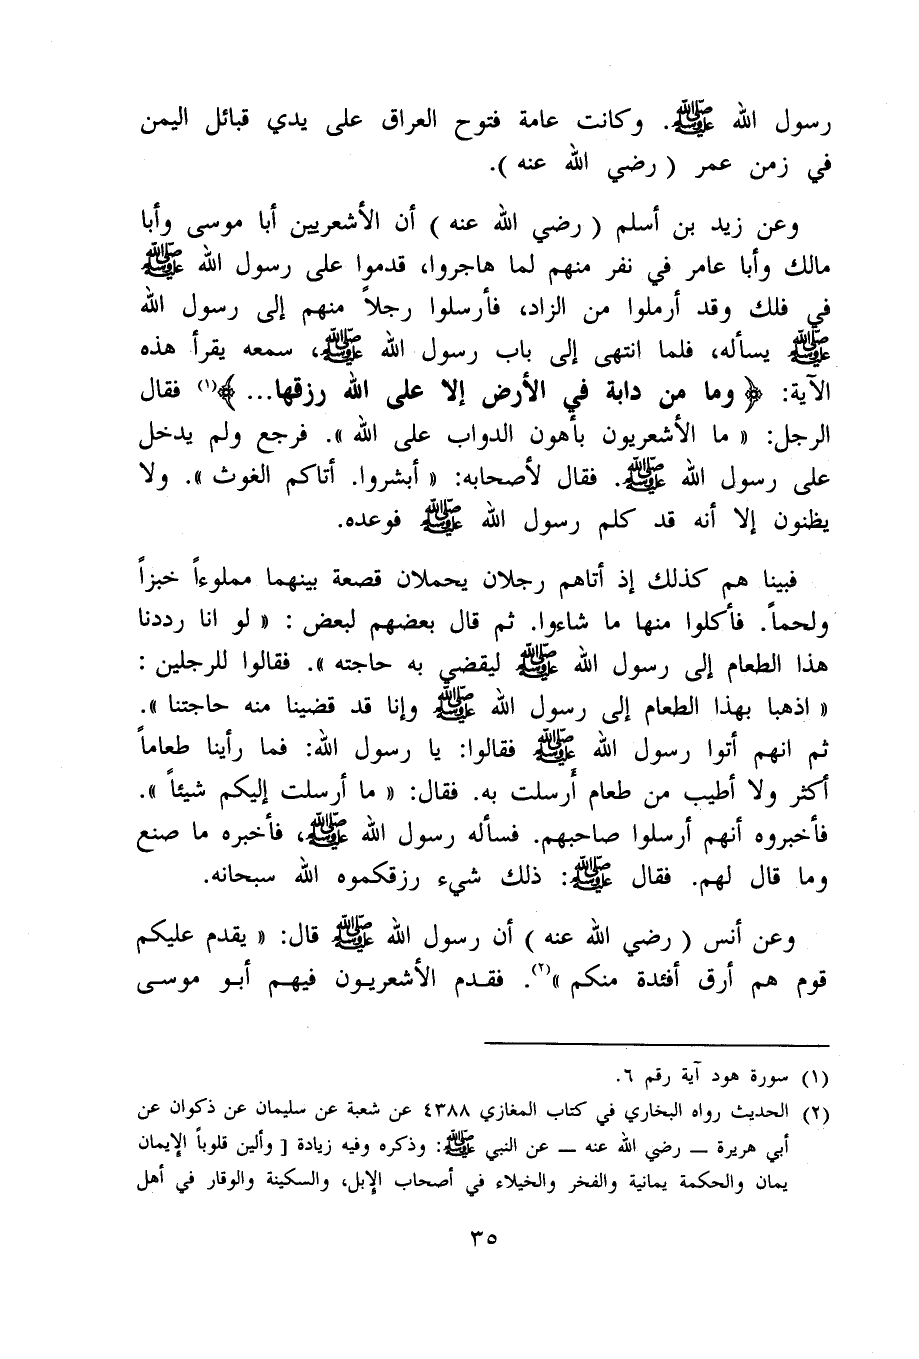 رسول الله ﷺ. وكانت عامة فتوح العراق على يدي قبائل اليمن
في زمن عمر ( رضي الله عنه ).
وعن زيد بن أسلم ( رضي الله عنه ) أن الأشعريين أبا موسى وأبا
مالك وأبا عامر في نفر منهم لما هاجروا، قدموا على رسول الله ﷺ
في فلك وقد أرملوا من الزاد، فأرسلوا رجلاً منهم إلى رسول الله
ﷺ يسأله، فلما انتهى إلى باب رسول الله ﷺ، سمعه يقرأ هذه
الآية: ﴿ وما من دابة في الأرض إلا على الله رزقها... ﴾(١) فقال
الرجل: « ما الأشعريون بأهون الدواب على الله ». فرجع ولم يدخل
على رسول الله ﷺ. فقال لأصحابه: « أبشروا. أتاكم الغوث ». ولا
يظنون إلا أنه قد كلم رسول الله ﷺ فوعده.
فبينا هم كذلك إذ أتاهم رجلان يحملان قصعة بينهما مملوءاً خبزاً
ولحماً. فأكلوا منها ما شاءوا. ثم قال بعضهم لبعض : « لو انا رددنا
هذا الطعام إلى رسول الله ﷺ ليقضي به حاجته ». فقالوا للرجلين :
« اذهبا بهذا الطعام إلى رسول الله ﷺ وإنا قد قضينا منه حاجتنا ».
ثم انهم أتوا رسول الله ﷺ فقالوا: يا رسول الله: فما رأينا طعاماً
أكثر ولا أطيب من طعام أرسلت به. فقال: « ما أرسلت إليكم شيئاً ».
فأخبروه أنهم أرسلوا صاحبهم. فسأله رسول الله ﷺ، فأخبره ما صنع
وما قال لهم. فقال ﷺ: ذلك شيء رزقكموه الله سبحانه.
وعن أنس ( رضي الله عنه ) أن رسول الله ﷺ قال: « يقدم عليكم
قوم هم أرق أفئدة منكم »(٢). فقدم الأشعريون فيهم أبو موسى
(١) سورة هود آية رقم ٦.
(٢) الحديث رواه البخاري في كتاب المغازي ٤٣٨٨ عن شعبة عن سليمان عن ذكوان عن
أبي هريرة ــ رضي الله عنه ــ عن النبي ﷺ: وذكره وفيه زيادة [ وألين قلوباً الإيمان
يمان والحكمة يمانية والفخر والخيلاء في أصحاب الإبل، والسكينة والوقار في أهل
٣٥